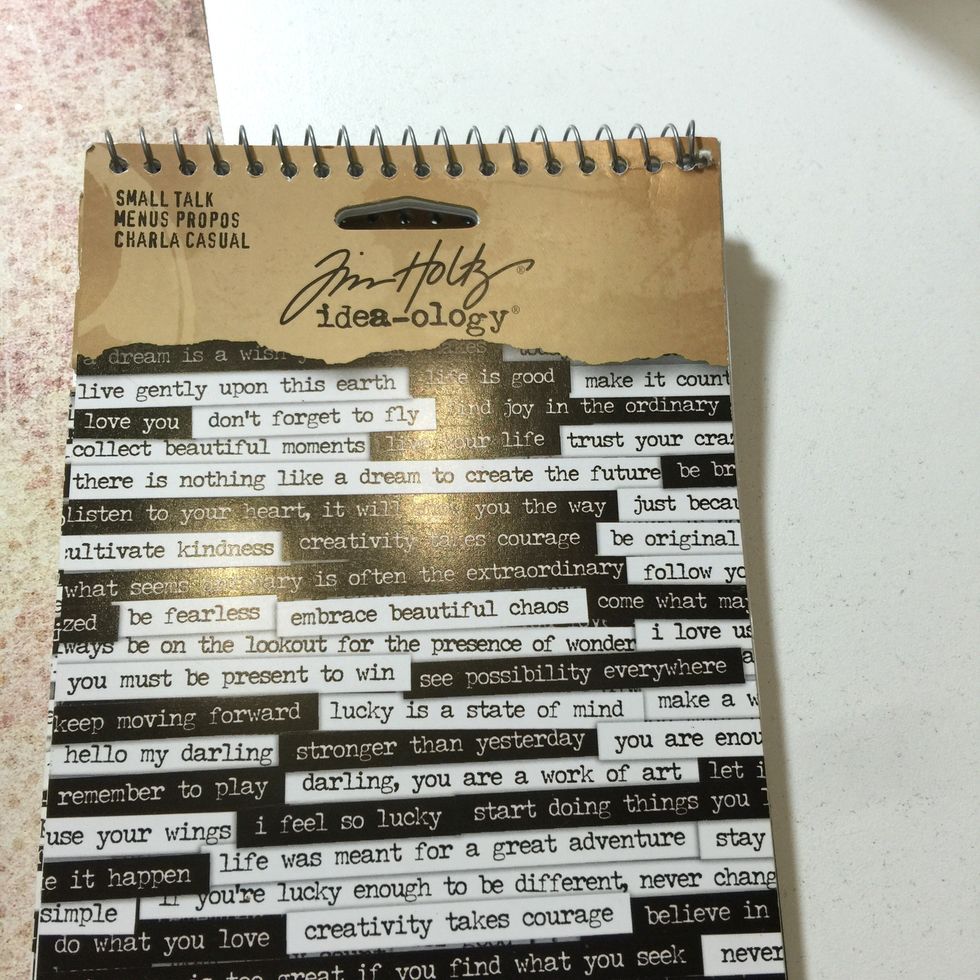 SMALL TALK
MENUS PROPOS
CHARLA CASUAL
Tim Holtz®
idea-ology®
a dream is a wish
live gently upon this earth life is good make it count
love you don't forget to fly find joy in the ordinary
collect beautiful moments live your life trust your
there is nothing like a dream to create the future be
listen to your heart, it will you the way just
kindness creativity takes courage be original
what seems is often the extraordinary follow
be fearless embrace beautiful chaos come what
be on the lookout for the presence of wonder i love
you must be present to win see possibility everywhere
keep moving forward lucky is a state of mind make a
hello my darling stronger than yesterday you are
remember to play darling, you are a work of art let
use your wings i feel so lucky start doing things you
life was meant for a great adventure stay
it happen if you're lucky enough to be different, never
simple creativity takes courage believe in
do what you love
is too great if you find what you seek never